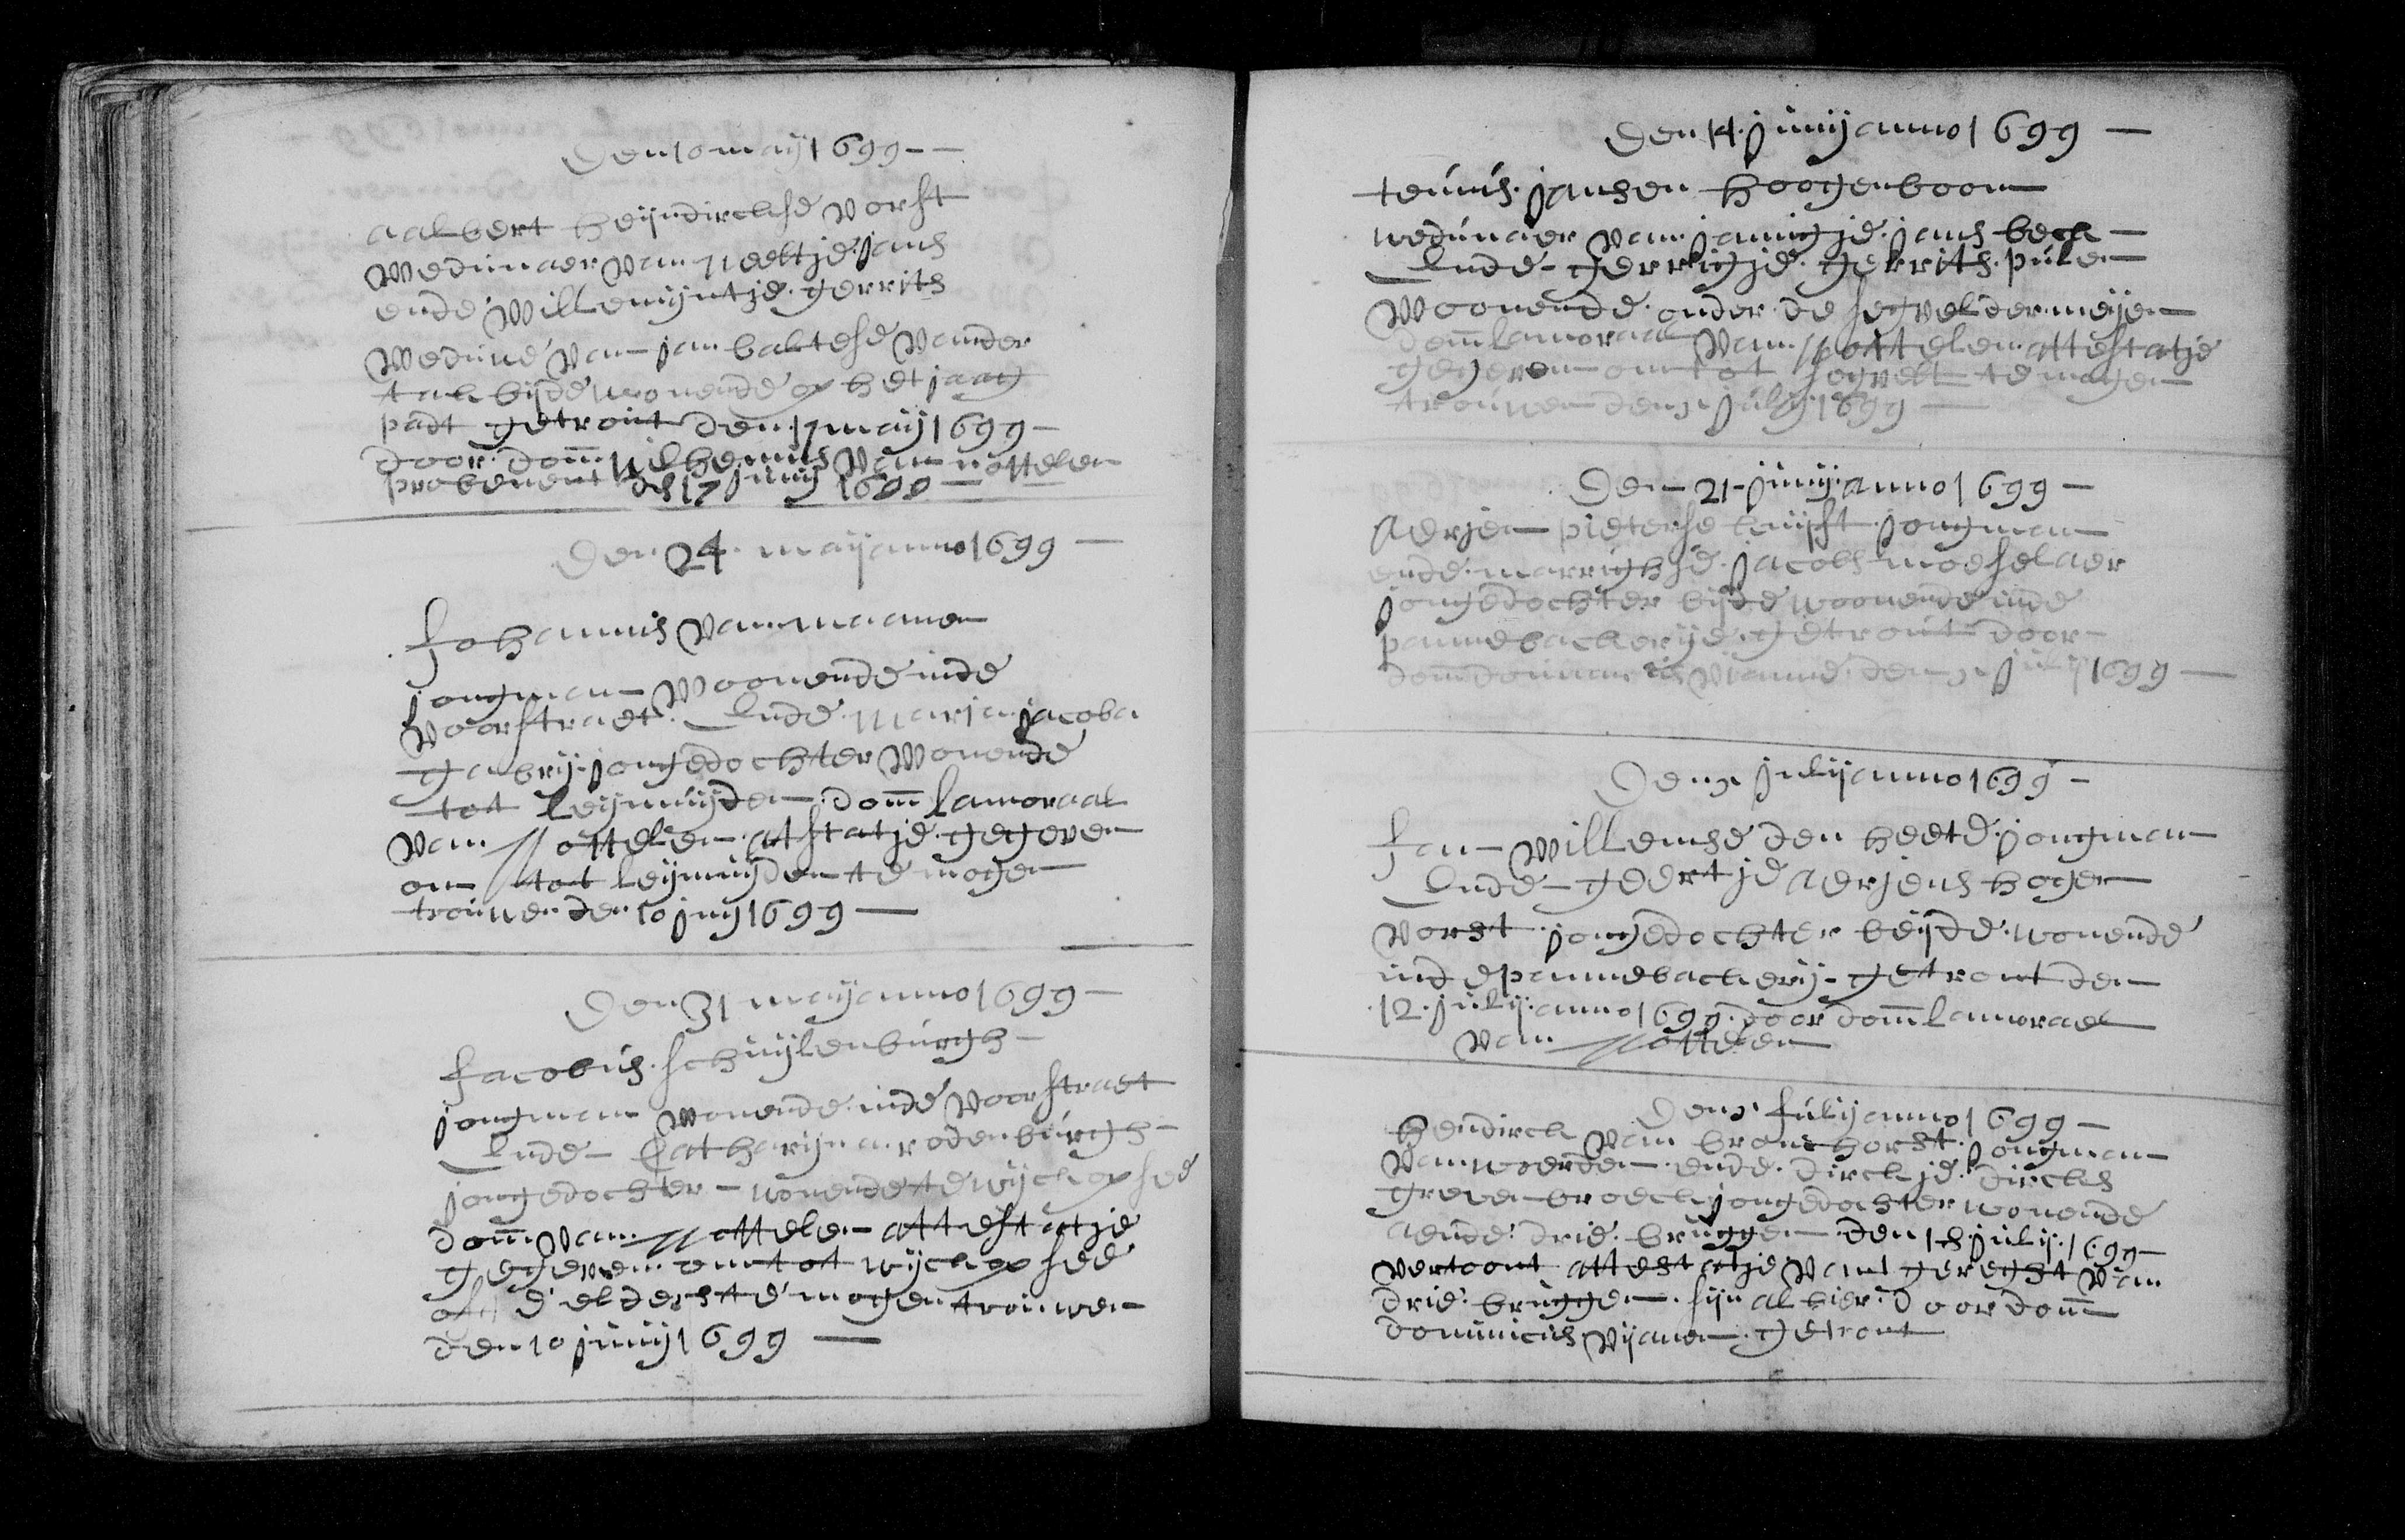 Den 10 maij 1699 - -
aalbert heijndirckse vorst
Wedunaer van Neeltje jans
ende Willemijntje gerrits
Wedúwe van jan baltese vander
tack bijde wonende op het jaag
padt getrout den 17 maij 1699 -
door dom wilhemus van nottelen
probenent des 17 junij 1699 -
Den 24 maij anno 1699 -
Johannis van maanen
jongman Woonende inde
Voorstraet. Ende Marja jacoba
gabrij jongedochter Wonende
tot leijmuijden dom lamoraal
van Nottelen atstatje gegeven
om tot leijmuijden te mogen
troúwen den 10 junij 1699 -
Den 31 maij anno 1699 -
Jacobús schuijlenbúrgh -
jongman wonende inde voorstraet
Ende - Catharijna rodenbúrgh -
jongedochter - wonende te wijck op see
dom van Nottelen attestatje
gegeven om tot wijck op see
oft d'elders te mogen troúwen
den 10 junij 1699 -
Den 14. junij anno 1699 -
teúnis. jansen hoogenboom
wedúnaer van jannigje jans beck -
Ende - gerrigje gerrits púlen
Woonende onder de segvelder meijen
dom lamoraal van Nottelen attestatje
gegeven om tot segvelt te mogen
troúwen den júlij 1699 -
Den - 21 - junij anno 1699 -
Aerjen pieterse kuijst jongman
ende marrighje jacobs moeselaer
jongedochter bijde woonende inde
pannebackerije getroút door -
dom dominicus vianne den júlij 1699 -
Den julij anno 1699 -
Jan Willemse den heete jongman
Ende - geertje Aerjens hogen
vorst jongedochter beijde wonende
inde pannebackerij - getrout den
12. júlij anno 1699 door dom lamorael
van Nottelen
Den júlij anno 1699 -
Hendirck van bronchorst jongman
van woerden ende dirckje dircks
grevenbroeck jongedochter wonende
aende drie brúggen den 18 júlij 1699 -
vertoont attestatje vant gereght van
drie brúggen sijn alhier door dom
dominicús vijanen getrout